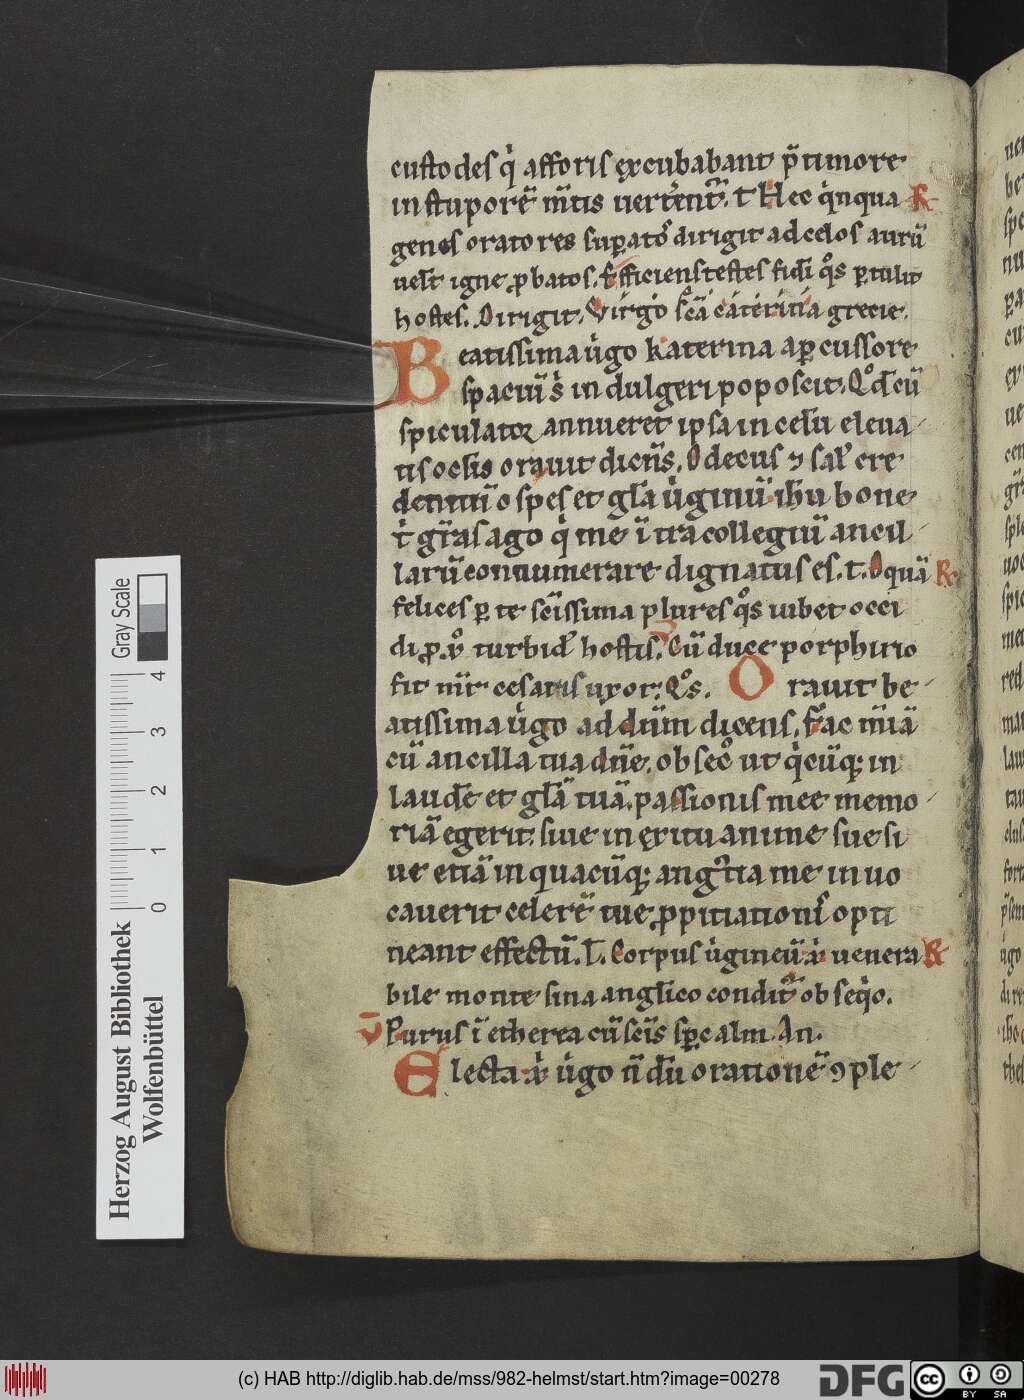 custodes q̇ afforis excubabant p̄ timore
in stuporē m̄tis uertent᷑. t Hec q̇nqua R
genos oratores suꝑatos dirigit ad celos aurū
uelt igne ꝓbatos. Efficiens testes fidi qͦs ꝑtulit
hostes. Dirigit. Virgo scā caterina grecie.
Beatissima u̇go katerina a ꝑcussore
spaciū ṡ indulgeri poposcit. Qͦd cū
spiculator annueret ipsa in celū eleua
tis oclis orauit dicēs. O decus ⁊ sal᷒ cre
dentiū o spes et gl̄a u̇ginū ihū bone
ṫ gr̄as ago q̇ me ītra collegiū ancil
larū connumerare dignatus es. t. O quā R
felices ꝑ te scīssima plures qͦs uibet occi
di ꝓ vͦ turbid᷒ hostis. Cū duce porphirio
fit mīr cesaris uxor. Qͦs. Orauit be
atissima u̇go ad dn̄m dicens. Fac m̄iā
cū ancilla tua dn̄e. obsecͦ ut q̇cūq; in
laude et gl̄ā tuā. passionis mee memo
riā egerit. siue in exitu anime sue si
ue etiā in quacūq; angͥtia me inuo
cauerit celerē tue ꝓpitiationis opti
neant effectū. L. Corpus u̇gineū ... uenera R
bile monte sina anglico condit᷑ obseq̇o.
V Purus ī etherea cū scīs sp̄c alm. An.
Electa ... u̇go n̄ dū orationē ⁊ple
Herzog August Bibliothek
Wolfenbüttel
Gray Scale
0 1 2 3 4
(c) HAB http://diglib.hab.de/mss/982-helmst/start.htm?image=00278
DFG
cc BY SA